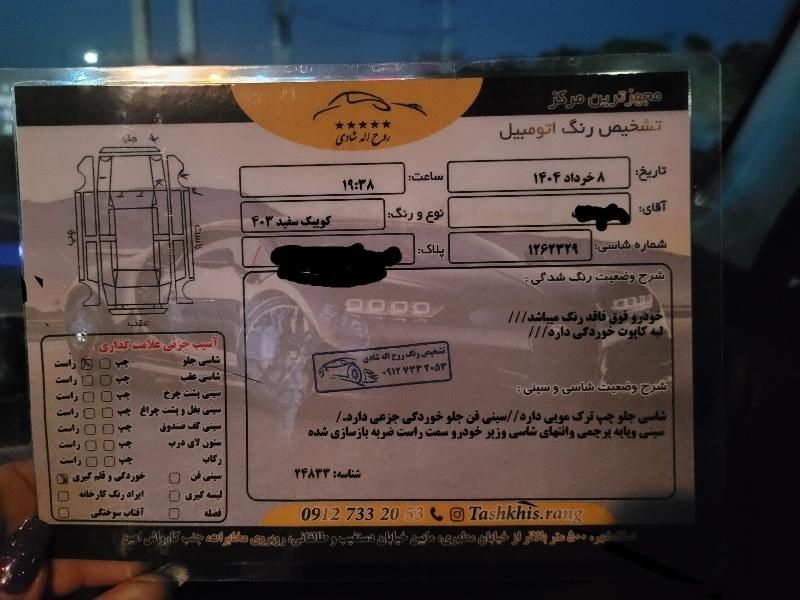 مجهزترین مرکز
تشخیص رنگ اتومبیل
روح اله شادی
تاریخ: ۸ خرداد ۱۴۰۴
ساعت: ۱۹:۳۸
آقای:
نوع و رنگ: کوییک سفید ۴۰۳
شماره شاسی: ۱۲۶۲۳۲۹
پلاک:
شرح وضعیت رنگ شدگی:
خودرو فوق فاقد رنگ میباشد///
لبه کاپوت خوردگی دارد///
تشخیص رنگ روح اله شادی
۰۹۱۲ ۷۳۳ ۲۰۵۳
شرح وضعیت شاسی و سینی:
شاسی جلو چپ ترک مویی دارد//سینی فن جلو خوردگی جزعی دارد./
سینی وپایه پرچمی وانتهای شاسی وزیر خودرو سمت راست ضربه بازسازی شده
شناسه: ۲۴۸۳۳
جلو
چپ
راست
عقب
آسیب جزئی علامت گذاری
شاسی جلو چپ راست
شاسی عقب چپ راست
سینی پشت چرخ چپ راست
سینی بغل و پشت چراغ چپ راست
سینی کف صندوق چپ راست
ستون لای درب چپ راست
رکاب چپ راست
سینی فن خوردگی و قلم گیری
لیسه گیری ایراد رنگ کارخانه
فضله آفتاب سوختگی
0912 733 20 53 Tashkhis.rang
اسلامشهر، ۵۰۰ متر بالاتر از خیابان مطهری، مابین خیابان دستغیب و طالقانی، روبروی مخابرات، جنب کارواش امین